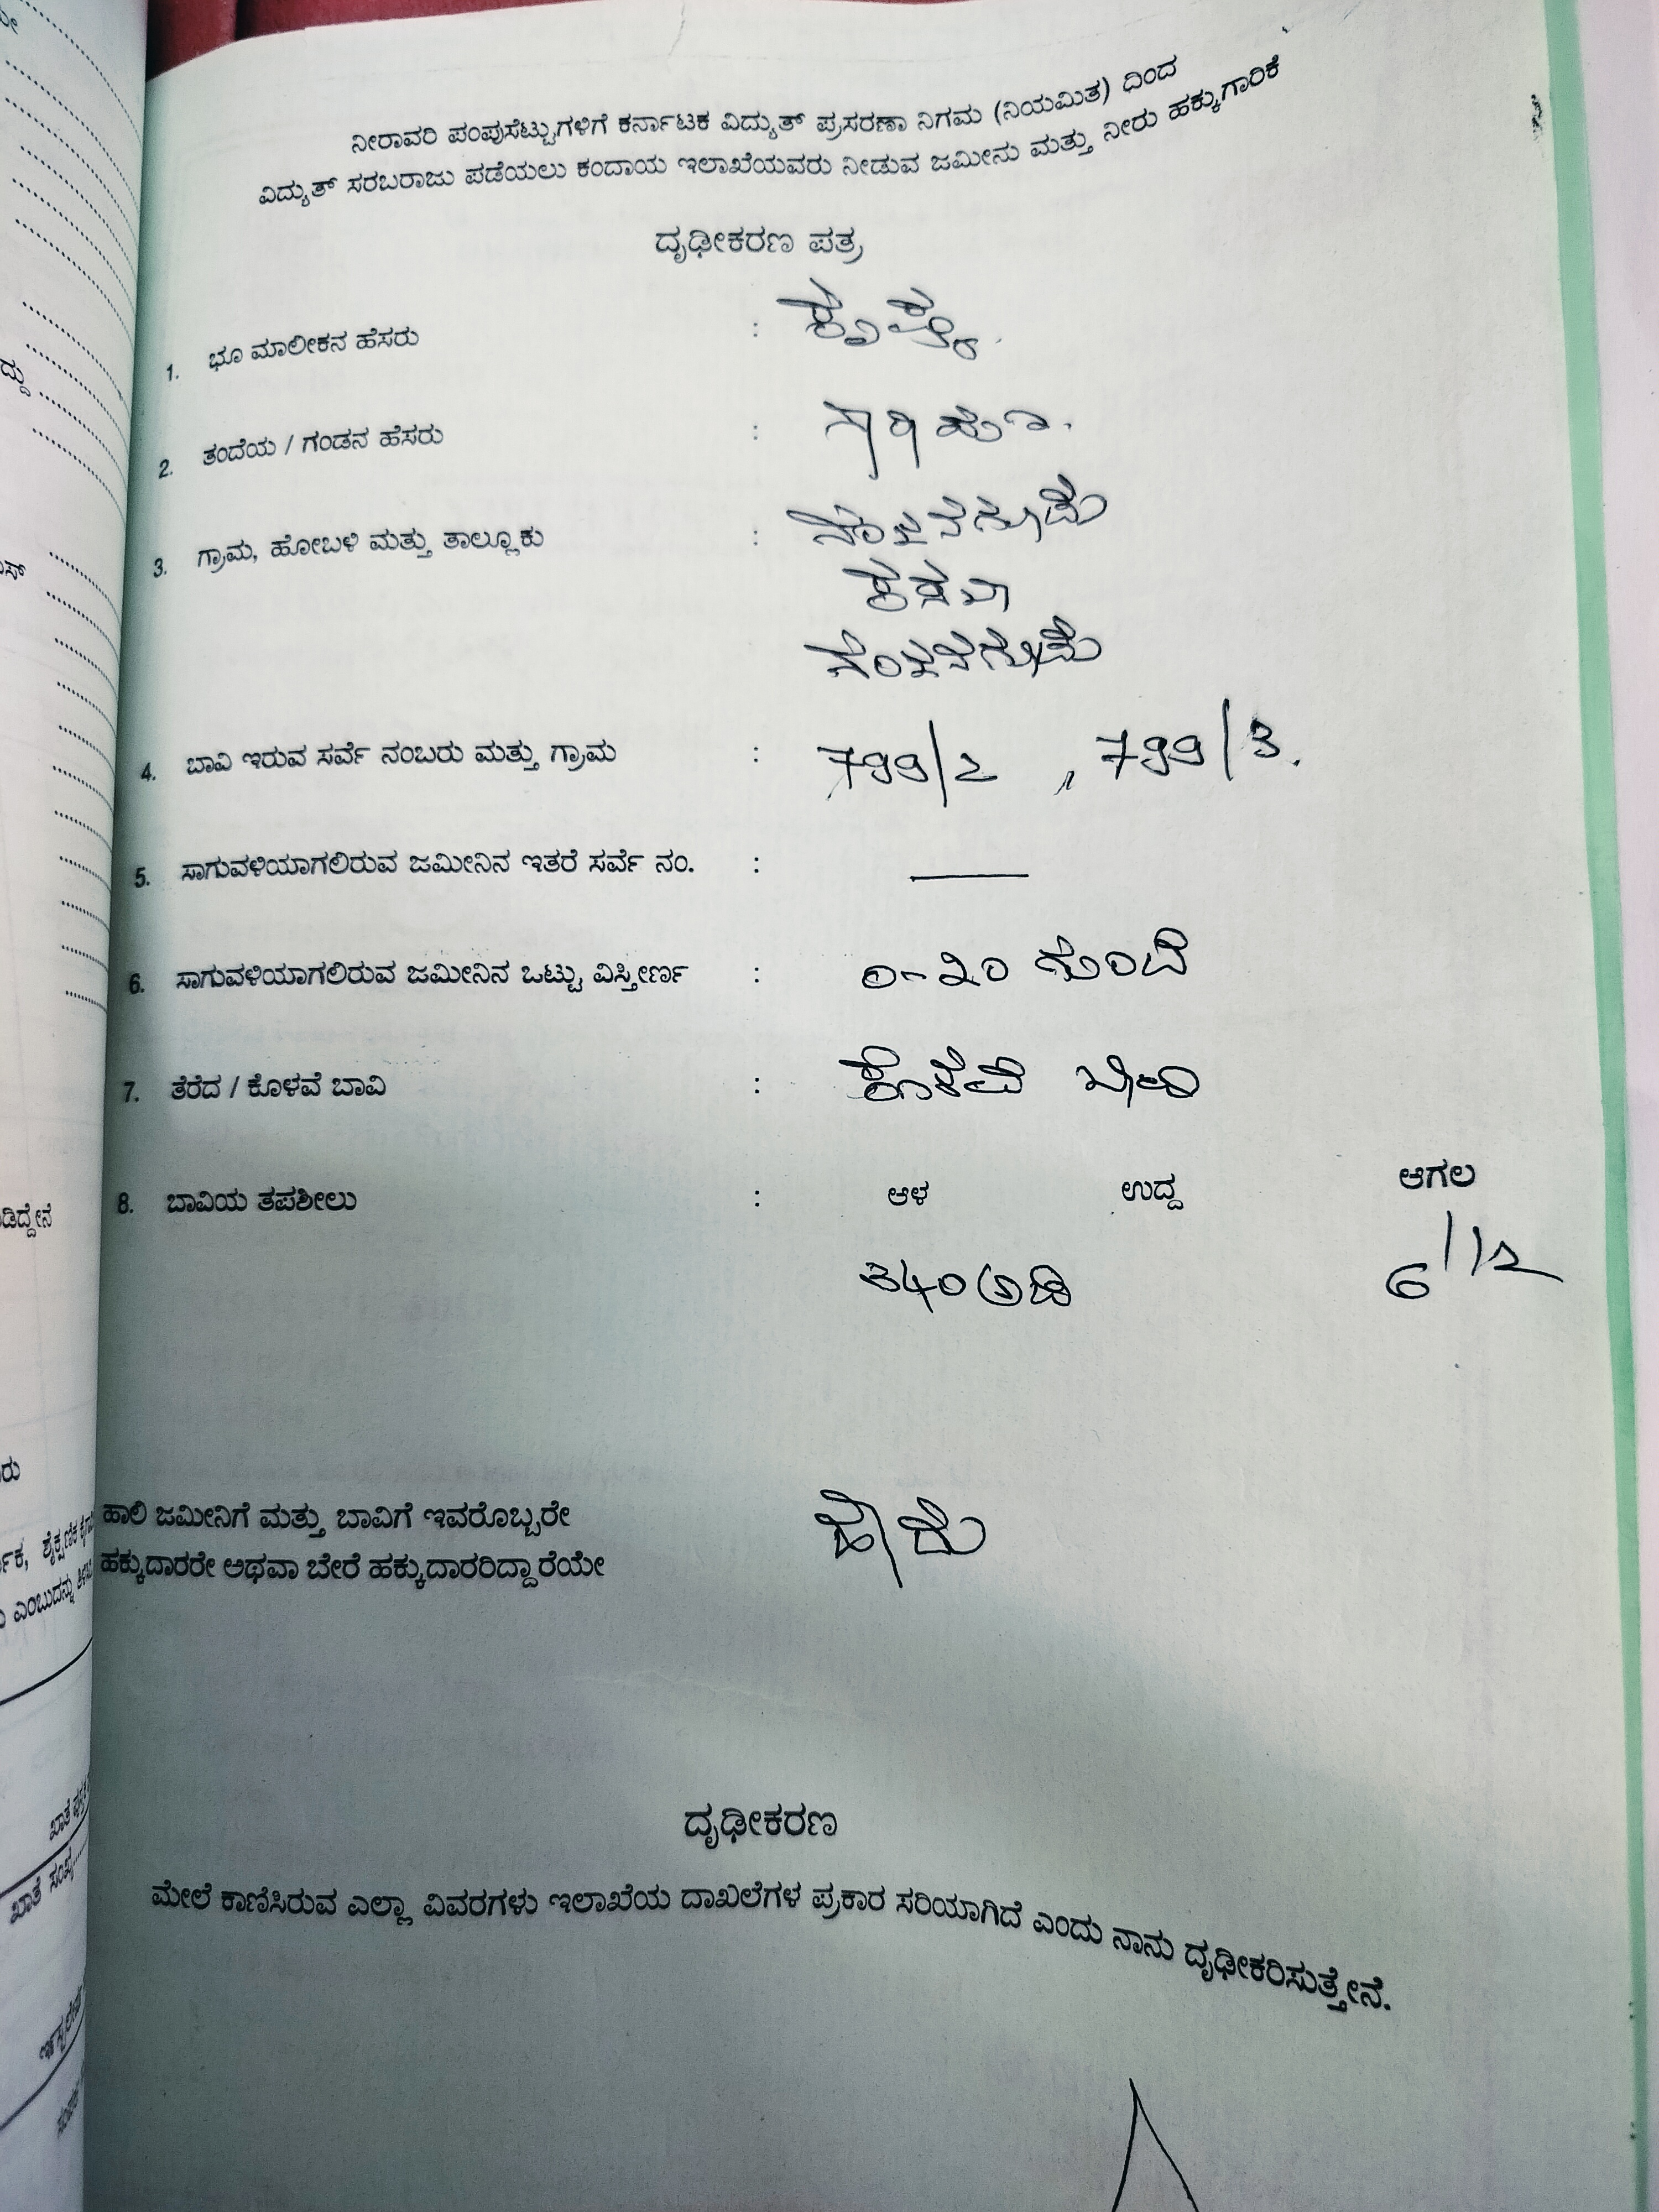 ನೀರಾವರಿ ಪಂಪುಸೆಟ್ಟುಗಳಿಗೆ ಕರ್ನಾಟಕ ವಿದ್ಯುತ್ ಪ್ರಸರಣಾ ನಿಗಮ (ನಿಯಮಿತ) ದಿಂದ
ವಿದ್ಯುತ್ ಸರಬರಾಜು ಪಡೆಯಲು ಕಂದಾಯ ಇಲಾಖೆಯವರು ನೀಡುವ ಜಮೀನು ಮತ್ತು ನೀರು ಹಕ್ಕುಗಾರಿಕೆ
ದೃಢೀಕರಣ ಪತ್ರ
1. ಭೂ ಮಾಲೀಕನ ಹೆಸರು :
2. ತಂದೆಯ / ಗಂಡನ ಹೆಸರು :
3. ಗ್ರಾಮ, ಹೋಬಳಿ ಮತ್ತು ತಾಲ್ಲೂಕು : ನಂಜನಗೂಡು
ಕಸಬಾ
ನಂಜನಗೂಡು
4. ಬಾವಿ ಇರುವ ಸರ್ವೆ ನಂಬರು ಮತ್ತು ಗ್ರಾಮ : 799/2 , 799/3.
5. ಸಾಗುವಳಿಯಾಗಲಿರುವ ಜಮೀನಿನ ಇತರೆ ಸರ್ವೆ ನಂ. : —
6. ಸಾಗುವಳಿಯಾಗಲಿರುವ ಜಮೀನಿನ ಒಟ್ಟು ವಿಸ್ತೀರ್ಣ : 0-20 ಗುಂಟೆ
7. ತೆರೆದ / ಕೊಳವೆ ಬಾವಿ : ಕೊಳವೆ ಬಾವಿ
8. ಬಾವಿಯ ತಪಶೀಲು : ಆಳ ಉದ್ದ ಆಗಲ
340 ಅಡಿ 6 1/2
ಹಾಲಿ ಜಮೀನಿಗೆ ಮತ್ತು ಬಾವಿಗೆ ಇವರೊಬ್ಬರೇ
ಹಕ್ಕುದಾರರೇ ಅಥವಾ ಬೇರೆ ಹಕ್ಕುದಾರರಿದ್ದಾರೆಯೇ ಹೌದು
ದೃಢೀಕರಣ
ಮೇಲೆ ಕಾಣಿಸಿರುವ ಎಲ್ಲಾ ವಿವರಗಳು ಇಲಾಖೆಯ ದಾಖಲೆಗಳ ಪ್ರಕಾರ ಸರಿಯಾಗಿದೆ ಎಂದು ನಾನು ದೃಢೀಕರಿಸುತ್ತೇನೆ.